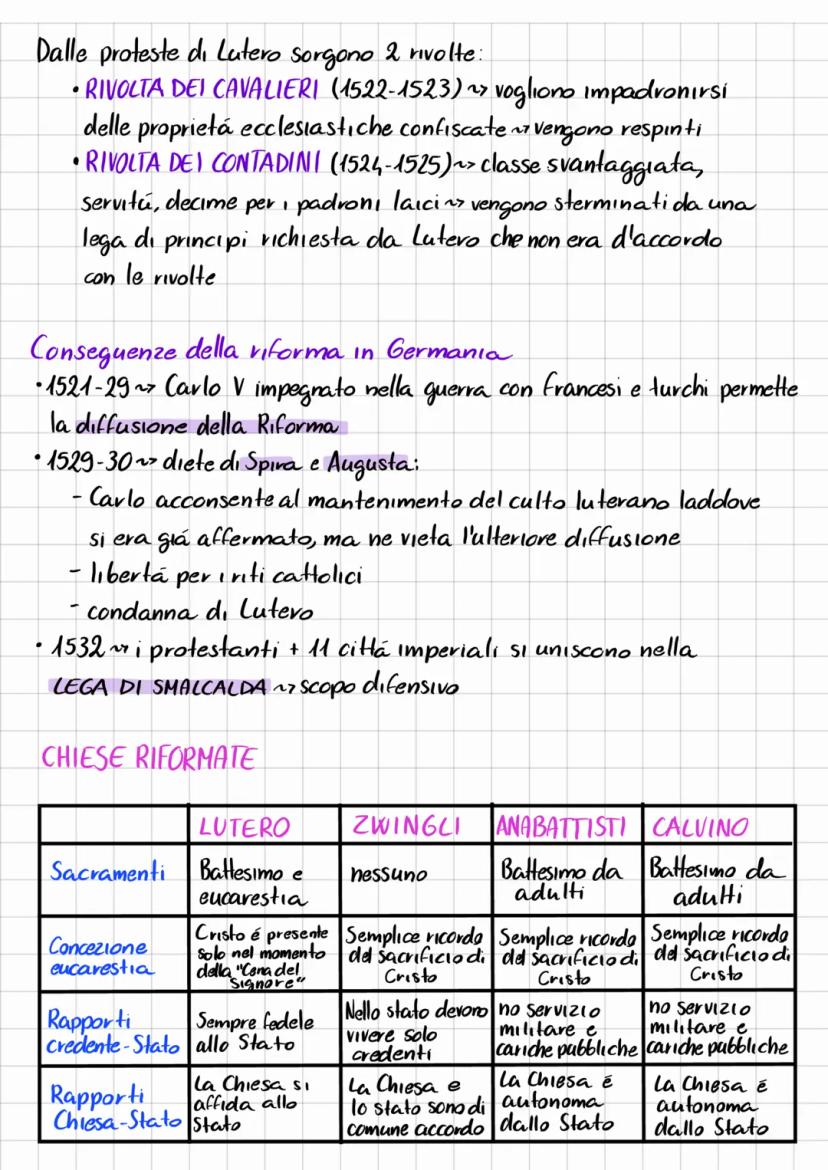 Dalle proteste di Lutero sorgono 2 rivolte:
• RIVOLTA DEI CAVALIERI (1522-1523) ~> vogliono impadronirsi
delle proprietá ecclesiastiche confiscate ~> vengono respinti
• RIVOLTA DEI CONTADINI (1524-1525) ~> classe svantaggiata,
servitú, decime per i padroni laici ~> vengono sterminati da una
lega di principi richiesta da Lutero che non era d'accordo
con le rivolte
Conseguenze della riforma in Germania
• 1521-29 ~> Carlo V impegnato nella guerra con francesi e turchi permette
la diffusione della Riforma
• 1529-30 ~> diete di Spira e Augusta:
- Carlo acconsente al mantenimento del culto luterano laddove
si era giá affermato, ma ne vieta l'ulteriore diffusione
- libertá per i riti cattolici
- condanna di Lutero
• 1532 ~> i protestanti + 11 cittá imperiali si uniscono nella
LEGA DI SMALCALDA ~> scopo difensivo
CHIESE RIFORMATE
LUTERO ZWINGLI ANABATTISTI CALVINO
Sacramenti
Battesimo e
eucarestia
nessuno
Battesimo da
adulti
Battesimo da
adulti
Concezione
eucarestia
Cristo é presente
solo nel momento
della "Cena del
Signore"
Semplice ricordo
del sacrificio di
Cristo
Semplice ricordo
del sacrificio di
Cristo
Semplice ricordo
del sacrificio di
Cristo
Rapporti
credente-Stato
Sempre fedele
allo Stato
Nello stato devono
vivere solo
credenti
no servizio
militare e
cariche pubbliche
no servizio
militare e
cariche pubbliche
Rapporti
Chiesa-Stato
La Chiesa si
affida allo
Stato
La Chiesa e
lo stato sono di
comune accordo
La Chiesa é
autonoma
dallo Stato
La Chiesa é
autonoma
dallo Stato